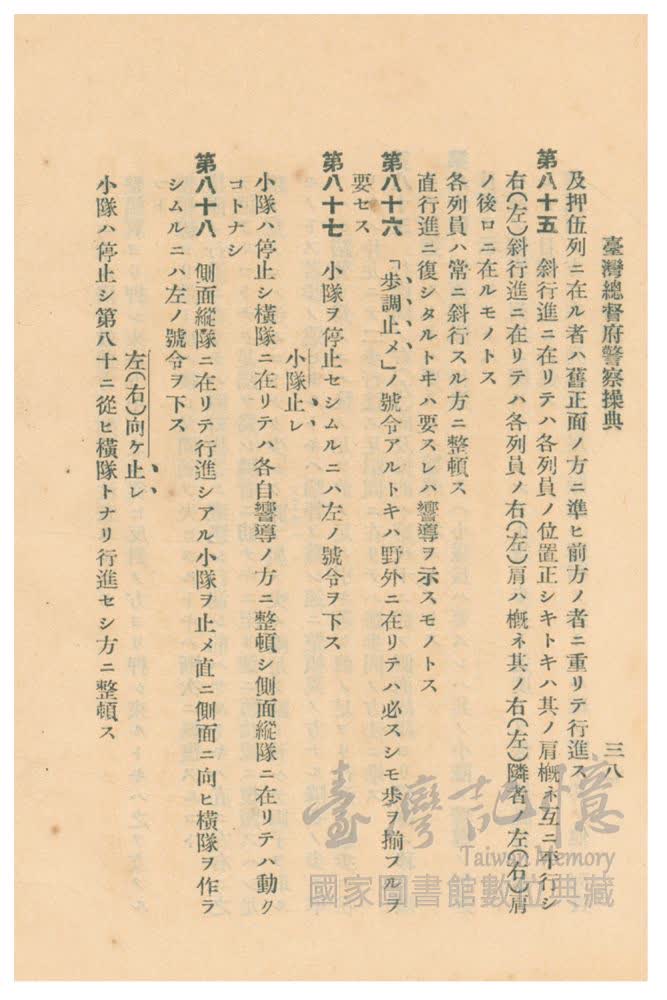 臺灣總督府警察操典
三八
及押伍列ニ在ル者ハ舊正面ノ方ニ準ヒ前方ノ者ニ重リテ行進ス
第八十五　斜行進ニ在リテハ各列員ノ位置正シキトキハ其ノ肩概ネ互ニ平行シ
右(左)斜行進ニ在リテハ各列員ノ右(左)肩ハ概ネ其ノ右(左)隣者ノ左(右)肩
ノ後ロニ在ルモノトス
各列員ハ常ニ斜行スル方ニ整頓ス
直行進ニ復シタルトキハ要スレハ響導ヲ示スモノトス
第八十六　「步調止メ」ノ號令アルトキハ野外ニ在リテハ必スシモ步ヲ揃フルヲ
要セス
第八十七　小隊ヲ停止セシムルニハ左ノ號令ヲ下ス
小隊止レ
小隊ハ停止シ橫隊ニ在リテハ各自響導ノ方ニ整頓シ側面縱隊ニ在リテハ動ク
コトナシ
第八十八　側面縱隊ニ在リテ行進シアル小隊ヲ止メ直ニ側面ニ向ヒ橫隊ヲ作ラ
シムルニハ左ノ號令ヲ下ス
左(右)向ケ止レ
小隊ハ停止シ第八十ニ從ヒ橫隊トナリ行進セシ方ニ整頓ス
臺灣記憶
Taiwan Memory
國家圖書館數位典藏